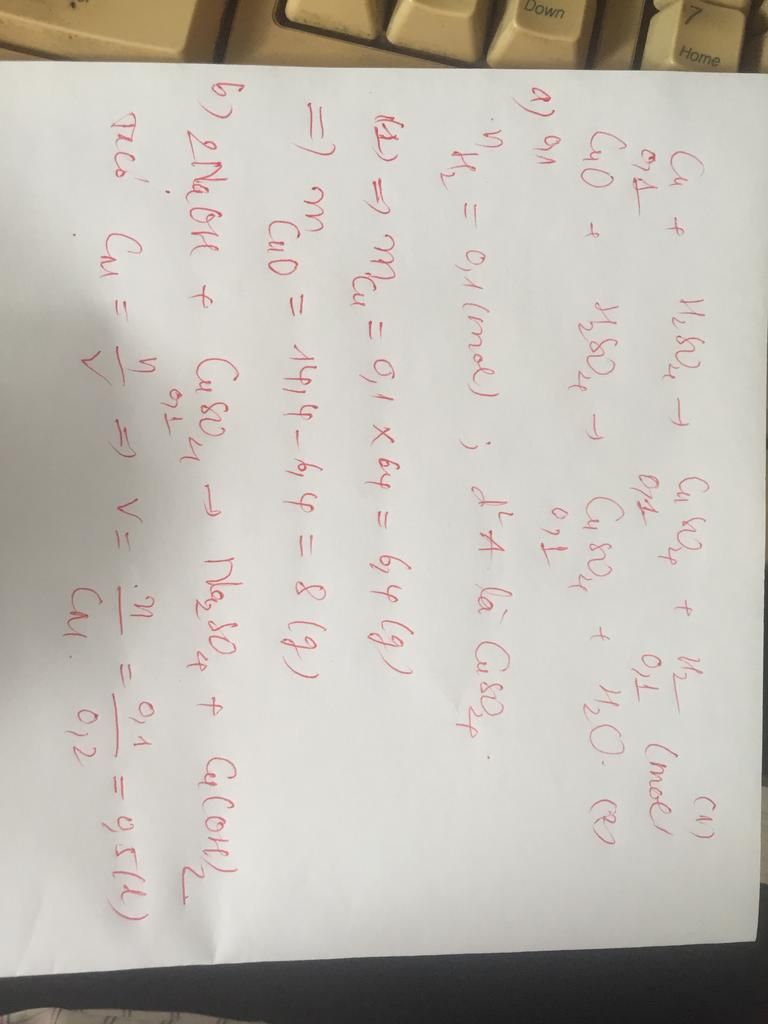 Cu + H2SO4 → CuSO4 + H2 (1)
0,1 0,1 0,1 (mol)
CuO + H2SO4 → CuSO4 + H2O. (2)
0,1 0,1
a)
nH2 = 0,1 (mol) ; d² A là CuSO4.
(1) => mCu = 0,1 x 64 = 6,4 (g)
=> mCuO = 14,4 - 6,4 = 8 (g)
b) 2NaOH + CuSO4 → Na2SO4 + Cu(OH)2
0,1
Ta có CM = n/V => V = n/CM = 0,1/0,2 = 0,5 (l)
Down
7
Home